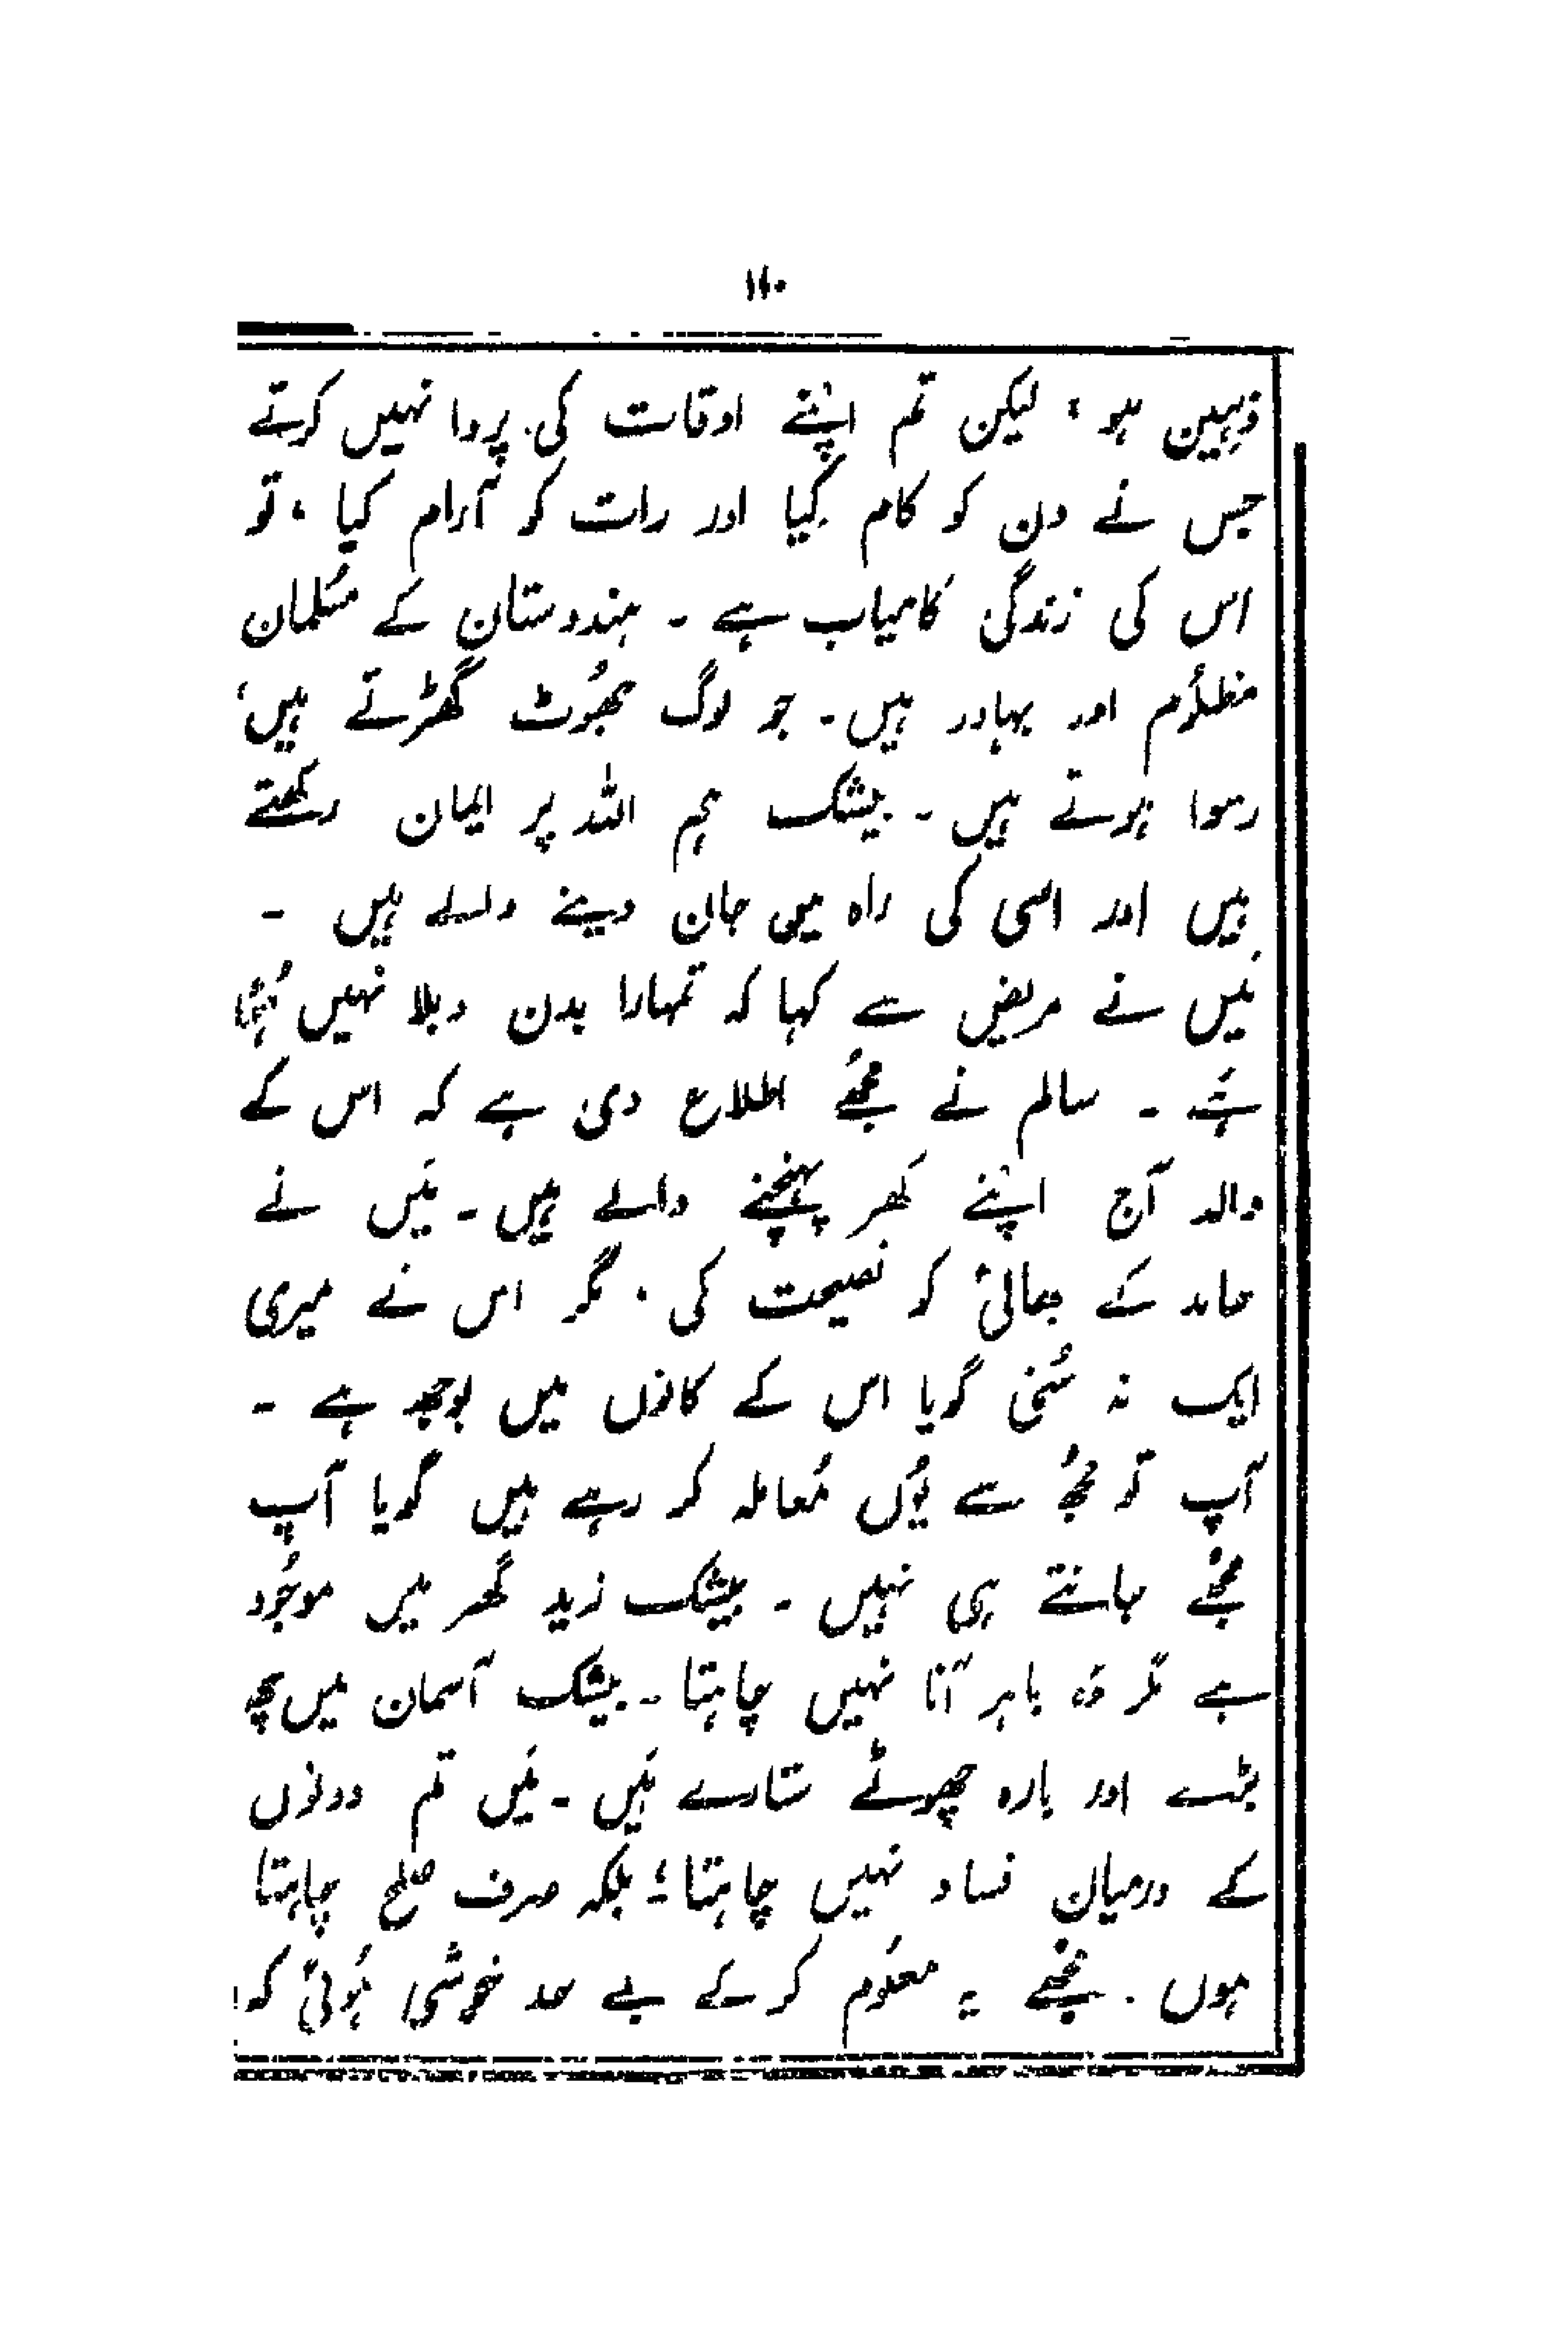 ۱۱۰
ذہین ہو، لیکن تم اپنے اوقات کی پروا نہیں کرتے
جس نے دن کو کام کیا اور رات کو آرام کیا، تو
اس کی زندگی کامیاب ہے ۔ ہندوستان کے مسُلمان
مظلوُم اور بہادر ہیں ۔ جو لوگ جھُوٹ گھڑتے ہیں،
رسوا ہوتے ہیں ۔ بیشک ہم اللہ پر ایمان رکھتے
ہیں اور اسی کی راہ میں جان دینے والے ہیں ۔
مَیں نے مریض سے کہا کہ تمہارا بدن دبلا نہیں ہُؤا
ہَے ۔ سالم نے مجھُے اطلاع دی ہے کہ اس کے
والد آج اپنے گھر پہنچنے والے ہیں ۔ مَیں نے
حامد کے بھائی کو نصیحت کی، مگر اس نے میری
ایک نہ سُنی گویا اس کے کانوں میں بوجھ ہے ۔
آپ تو مجھُ سے یُوں مُعاملہ کر رہے ہیں گویا آپ
مجھُے جانتے ہی نہیں ۔ بیشک زید گھر میں موجُود
ہے مگر وُہ باہر آنا نہیں چاہتا ۔ بیشک آسمان میں چھ
بڑے اور بارہ چھوٹے ستارے ہَیں ۔ مَیں تم دونوں
کے درمیان فساد نہیں چاہتا؛ بلکہ صرف صلح چاہتا
ہوں ۔ مجھُے یہ معلوُم کر کے بے حد خوشی ہُوئی کہ